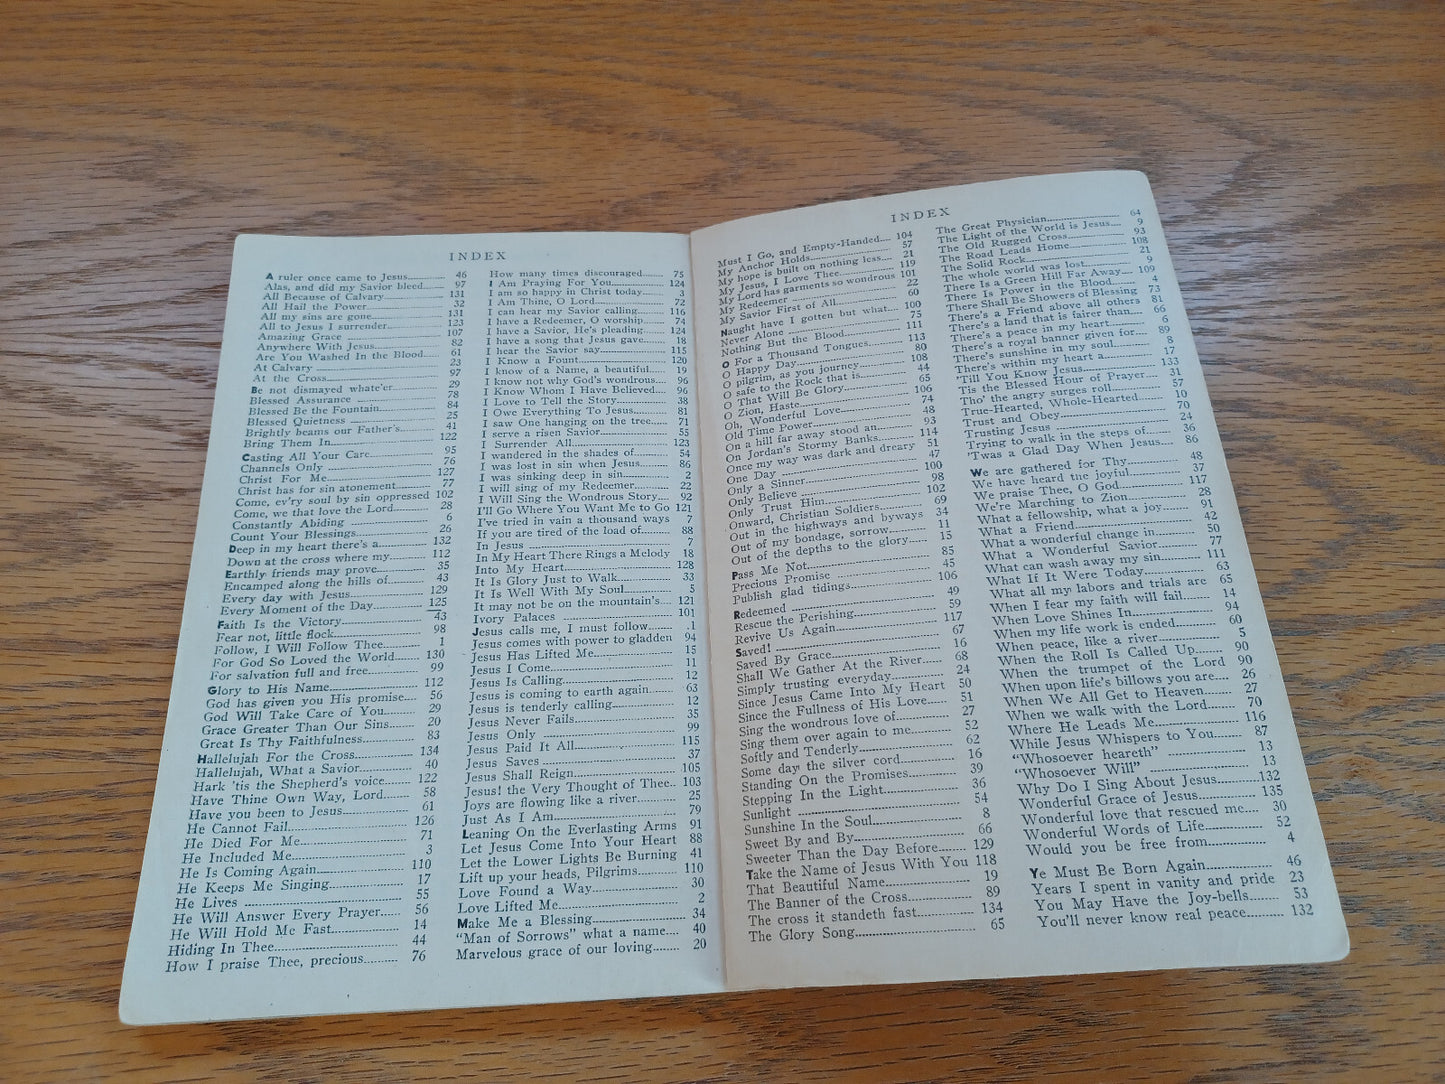 INDEX
A ruler once came to Jesus 46
Alas, and did my Savior bleed 97
All Because of Calvary 131
All Hail the Power 32
All my sins are gone 131
All to Jesus I surrender 123
Amazing Grace 107
Anywhere With Jesus 82
Are You Washed In the Blood 61
At Calvary 23
At the Cross 97
Be not dismayed whate'er 29
Blessed Assurance 78
Blessed Be the Fountain 84
Blessed Quietness 25
Brightly beams our Father's 41
Bring Them In 122
Casting All Your Care 95
Channels Only 76
Christ For Me 127
Christ has for sin atonement 77
Come, ev'ry soul by sin oppressed 102
Come, we that love the Lord 28
Constantly Abiding 6
Count Your Blessings 26
Deep in my heart there's a 132
Down at the cross where my 112
Earthly friends may prove 35
Encamped along the hills of 43
Every day with Jesus 129
Every Moment of the Day 125
Faith Is the Victory 43
Fear not, little flock 98
Follow, I Will Follow Thee 1
For God So Loved the World 130
For salvation full and free 99
Glory to His Name 112
God has given you His promise 56
God Will Take Care of You 29
Grace Greater Than Our Sins 20
Great Is Thy Faithfulness 83
Hallelujah For the Cross 134
Hallelujah, What a Savior 40
Hark 'tis the Shepherd's voice 122
Have Thine Own Way, Lord 58
Have you been to Jesus 61
He Cannot Fail 126
He Died For Me 71
He Included Me 3
He Is Coming Again 110
He Keeps Me Singing 17
He Lives 55
He Will Answer Every Prayer 56
He Will Hold Me Fast 14
Hiding In Thee 44
How I praise Thee, precious 76
How many times discouraged 75
I Am Praying For You 124
I am so happy in Christ today 3
I Am Thine, O Lord 72
I can hear my Savior calling 116
I have a Redeemer, O worship 74
I have a Savior, He's pleading 124
I have a song that Jesus gave 18
I hear the Savior say 115
I Know a Fount 120
I know of a Name, a beautiful 19
I know not why God's wondrous 96
I Know Whom I Have Believed 96
I Love to Tell the Story 38
I Owe Everything To Jesus 81
I saw One hanging on the tree 71
I serve a risen Savior 55
I Surrender All 123
I wandered in the shades of 54
I was lost in sin when Jesus 86
I was sinking deep in sin 2
I will sing of my Redeemer 22
I Will Sing the Wondrous Story 92
I'll Go Where You Want Me to Go 121
I've tried in vain a thousand ways 7
If you are tired of the load of 88
In Jesus 7
In My Heart There Rings a Melody 18
Into My Heart 128
It Is Glory Just to Walk 33
It Is Well With My Soul 5
It may not be on the mountain's 121
Ivory Palaces 101
Jesus calls me, I must follow 1
Jesus comes with power to gladden 94
Jesus Has Lifted Me 15
Jesus I Come 11
Jesus Is Calling 12
Jesus is coming to earth again 63
Jesus is tenderly calling 12
Jesus Never Fails 35
Jesus Only 99
Jesus Paid It All 115
Jesus Saves 37
Jesus Shall Reign 105
Jesus! the Very Thought of Thee 103
Joys are flowing like a river 25
Just As I Am 79
Leaning On the Everlasting Arms 91
Let Jesus Come Into Your Heart 88
Let the Lower Lights Be Burning 41
Lift up your heads, Pilgrims 110
Love Found a Way 30
Love Lifted Me 2
Make Me a Blessing 34
"Man of Sorrows" what a name 40
Marvelous grace of our loving 20
INDEX
Must I Go, and Empty-Handed 104
My Anchor Holds 57
My hope is built on nothing less 21
My Jesus, I Love Thee 119
My Lord has garments so wondrous 101
My Redeemer 22
My Savior First of All 60
Naught have I gotten but what 100
Never Alone 75
Nothing But the Blood 111
O For a Thousand Tongues 113
O Happy Day 80
O pilgrim, as you journey 108
O safe to the Rock that is 44
O That Will Be Glory 65
O Zion, Haste 106
Oh, Wonderful Love 74
Old Time Power 48
On a hill far away stood an 93
On Jordan's Stormy Banks 114
Once my way was dark and dreary 51
One Day 47
Only a Sinner 100
Only Believe 98
Only Trust Him 102
Onward, Christian Soldiers 69
Out in the highways and byways 34
Out of my bondage, sorrow 11
Out of the depths to the glory 15
Pass Me Not 85
Precious Promise 45
Publish glad tidings 106
Redeemed 49
Rescue the Perishing 59
Revive Us Again 117
Saved! 67
Saved By Grace 16
Shall We Gather At the River 68
Simply trusting everyday 24
Since Jesus Came Into My Heart 50
Since the Fullness of His Love 51
Sing the wondrous love of 27
Sing them over again to me 52
Softly and Tenderly 62
Some day the silver cord 16
Standing On the Promises 39
Stepping In the Light 36
Sunlight 54
Sunshine In the Soul 8
Sweet By and By 66
Sweeter Than the Day Before 129
Take the Name of Jesus With You 118
That Beautiful Name 19
The Banner of the Cross 89
The cross it standeth fast 134
The Glory Song 65
The Great Physician 64
The Light of the World is Jesus 9
The Old Rugged Cross 93
The Road Leads Home 108
The Solid Rock 21
The whole world was lost 9
There Is a Green Hill Far Away 109
There Is Power in the Blood 4
There Shall Be Showers of Blessing 73
There's a Friend above all others 81
There's a land that is fairer than 66
There's a peace in my heart 6
There's a royal banner given for 89
There's sunshine in my soul 8
There's within my heart a 17
'Till You Know Jesus 133
'Tis the Blessed Hour of Prayer 31
Tho' the angry surges roll 57
True-Hearted, Whole-Hearted 10
Trust and Obey 70
Trusting Jesus 24
Trying to walk in the steps of 36
'Twas a Glad Day When Jesus 86
We are gathered for Thy 48
We have heard the joyful 37
We praise Thee, O God 117
We're Marching to Zion 28
What a fellowship, what a joy 91
What a Friend 42
What a wonderful change in 50
What a Wonderful Savior 77
What can wash away my sin 111
What If It Were Today 63
What all my labors and trials are 65
When I fear my faith will fail 14
When Love Shines In 94
When my life work is ended 60
When peace, like a river 5
When the Roll Is Called Up 90
When the trumpet of the Lord 90
When upon life's billows you are 26
When We All Get to Heaven 27
When we walk with the Lord 70
Where He Leads Me 116
While Jesus Whispers to You 87
"Whosoever heareth" 13
"Whosoever Will" 13
Why Do I Sing About Jesus 132
Wonderful Grace of Jesus 135
Wonderful love that rescued me 30
Wonderful Words of Life 52
Would you be free from 4
Ye Must Be Born Again 46
Years I spent in vanity and pride 23
You May Have the Joy-bells 53
You'll never know real peace 132